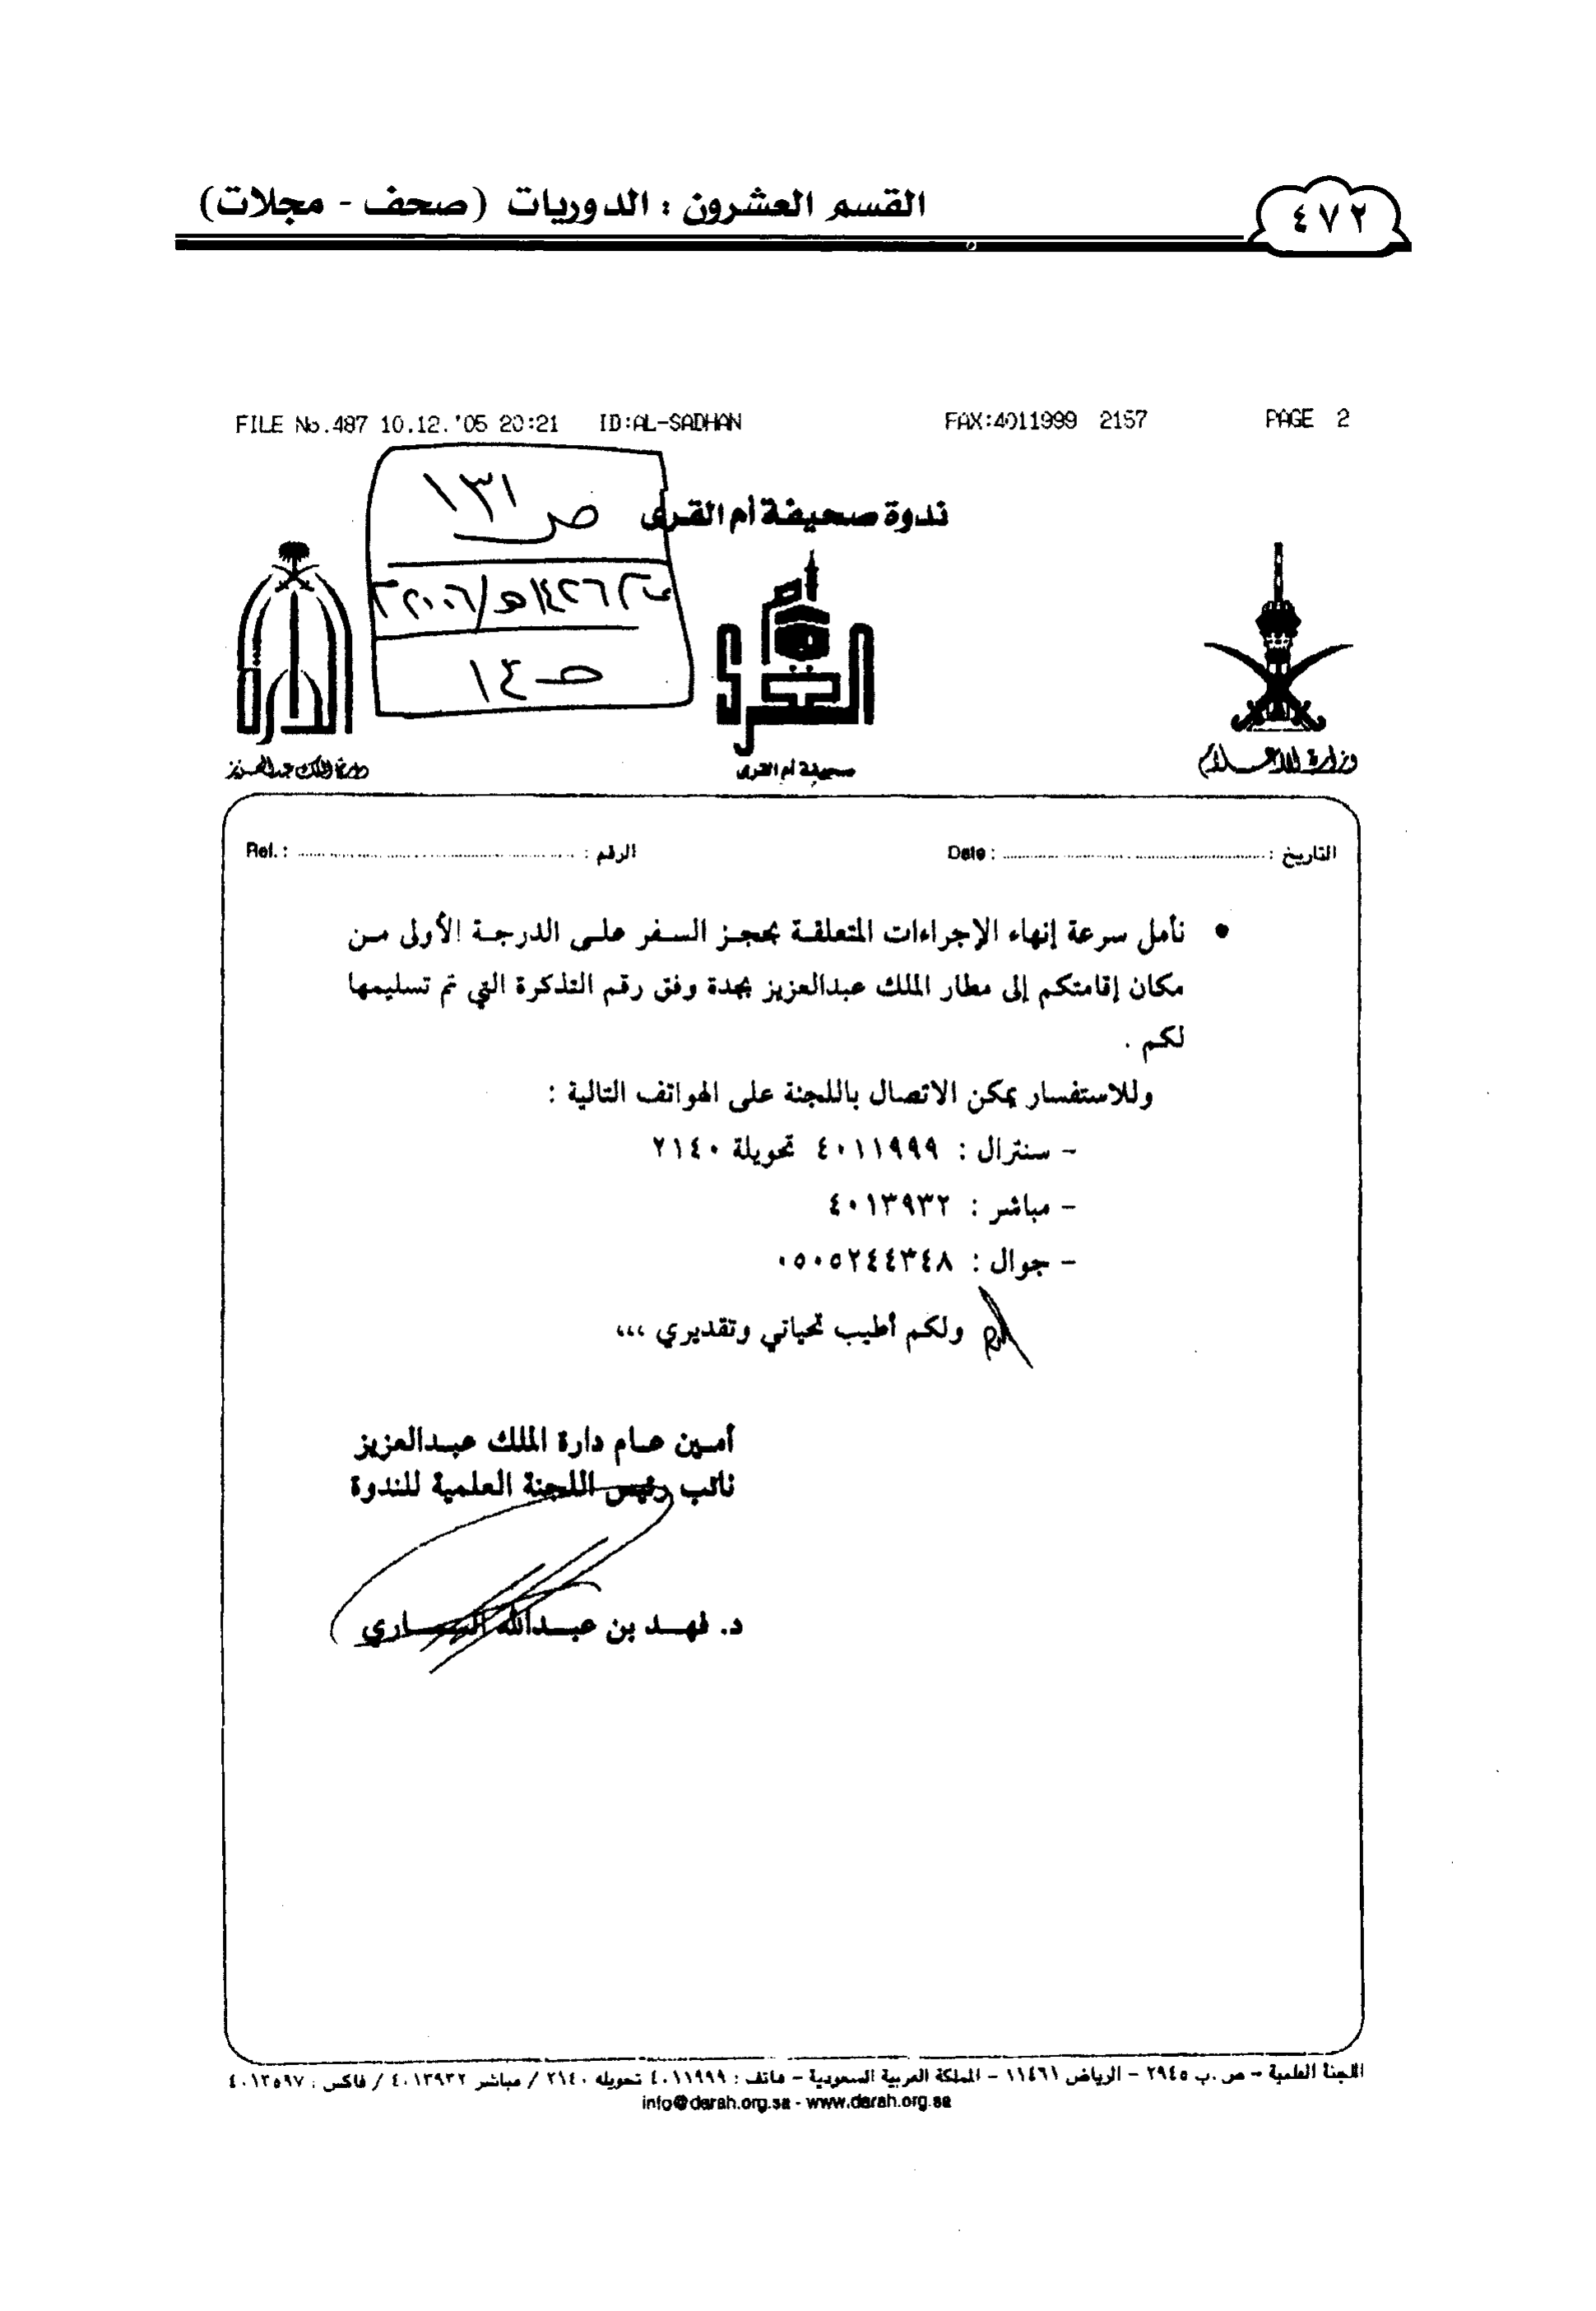 ٤٧٢
القسم العشرون : الدوريات (صحف - مجلات)
FILE No.487 10.12.'05 20:21 ID:AL-SADHAN FAX:4011999 2157 PAGE 2
ندوة صحيفة أم القرى
ص ١٣١
١٤٢٦هـ/٢٠٠٦م
صـ ١٤
أم القرى
الدارة
وزارة الإعلام
صحيفة أم القرى
دارة الملك عبدالعزيز
التاريخ : Date :
الرقم : Ref. :
• نأمل سرعة إنهاء الإجراءات المتعلقة بحجز السفر على الدرجة الأولى من
مكان إقامتكم إلى مطار الملك عبدالعزيز بجدة وفق رقم التذكرة التي تم تسليمها
لكم .
وللاستفسار يمكن الاتصال باللجنة على الهواتف التالية :
- سنترال : ٤٠١١٩٩٩ تحويلة ٢١٤٠
- مباشر : ٤٠١٣٩٣٢
- جوال : ٠٥٠٥٢٤٤٣٤٨
ولكم أطيب تحياتي وتقديري ،،،
أمين عام دارة الملك عبدالعزيز
نائب رئيس اللجنة العلمية للندوة
د. فهد بن عبدالله السماري
اللجنة العلمية - ص.ب ٢٩٤٥ - الرياض ١١٤٦١ - المملكة العربية السعودية - هاتف : ٤٠١١٩٩٩ تحويله ٢١٤٠ / مباشر ٤٠١٣٩٣٢ / فاكس : ٤٠١٣٥٩٧
info@darah.org.sa - www.darah.org.sa